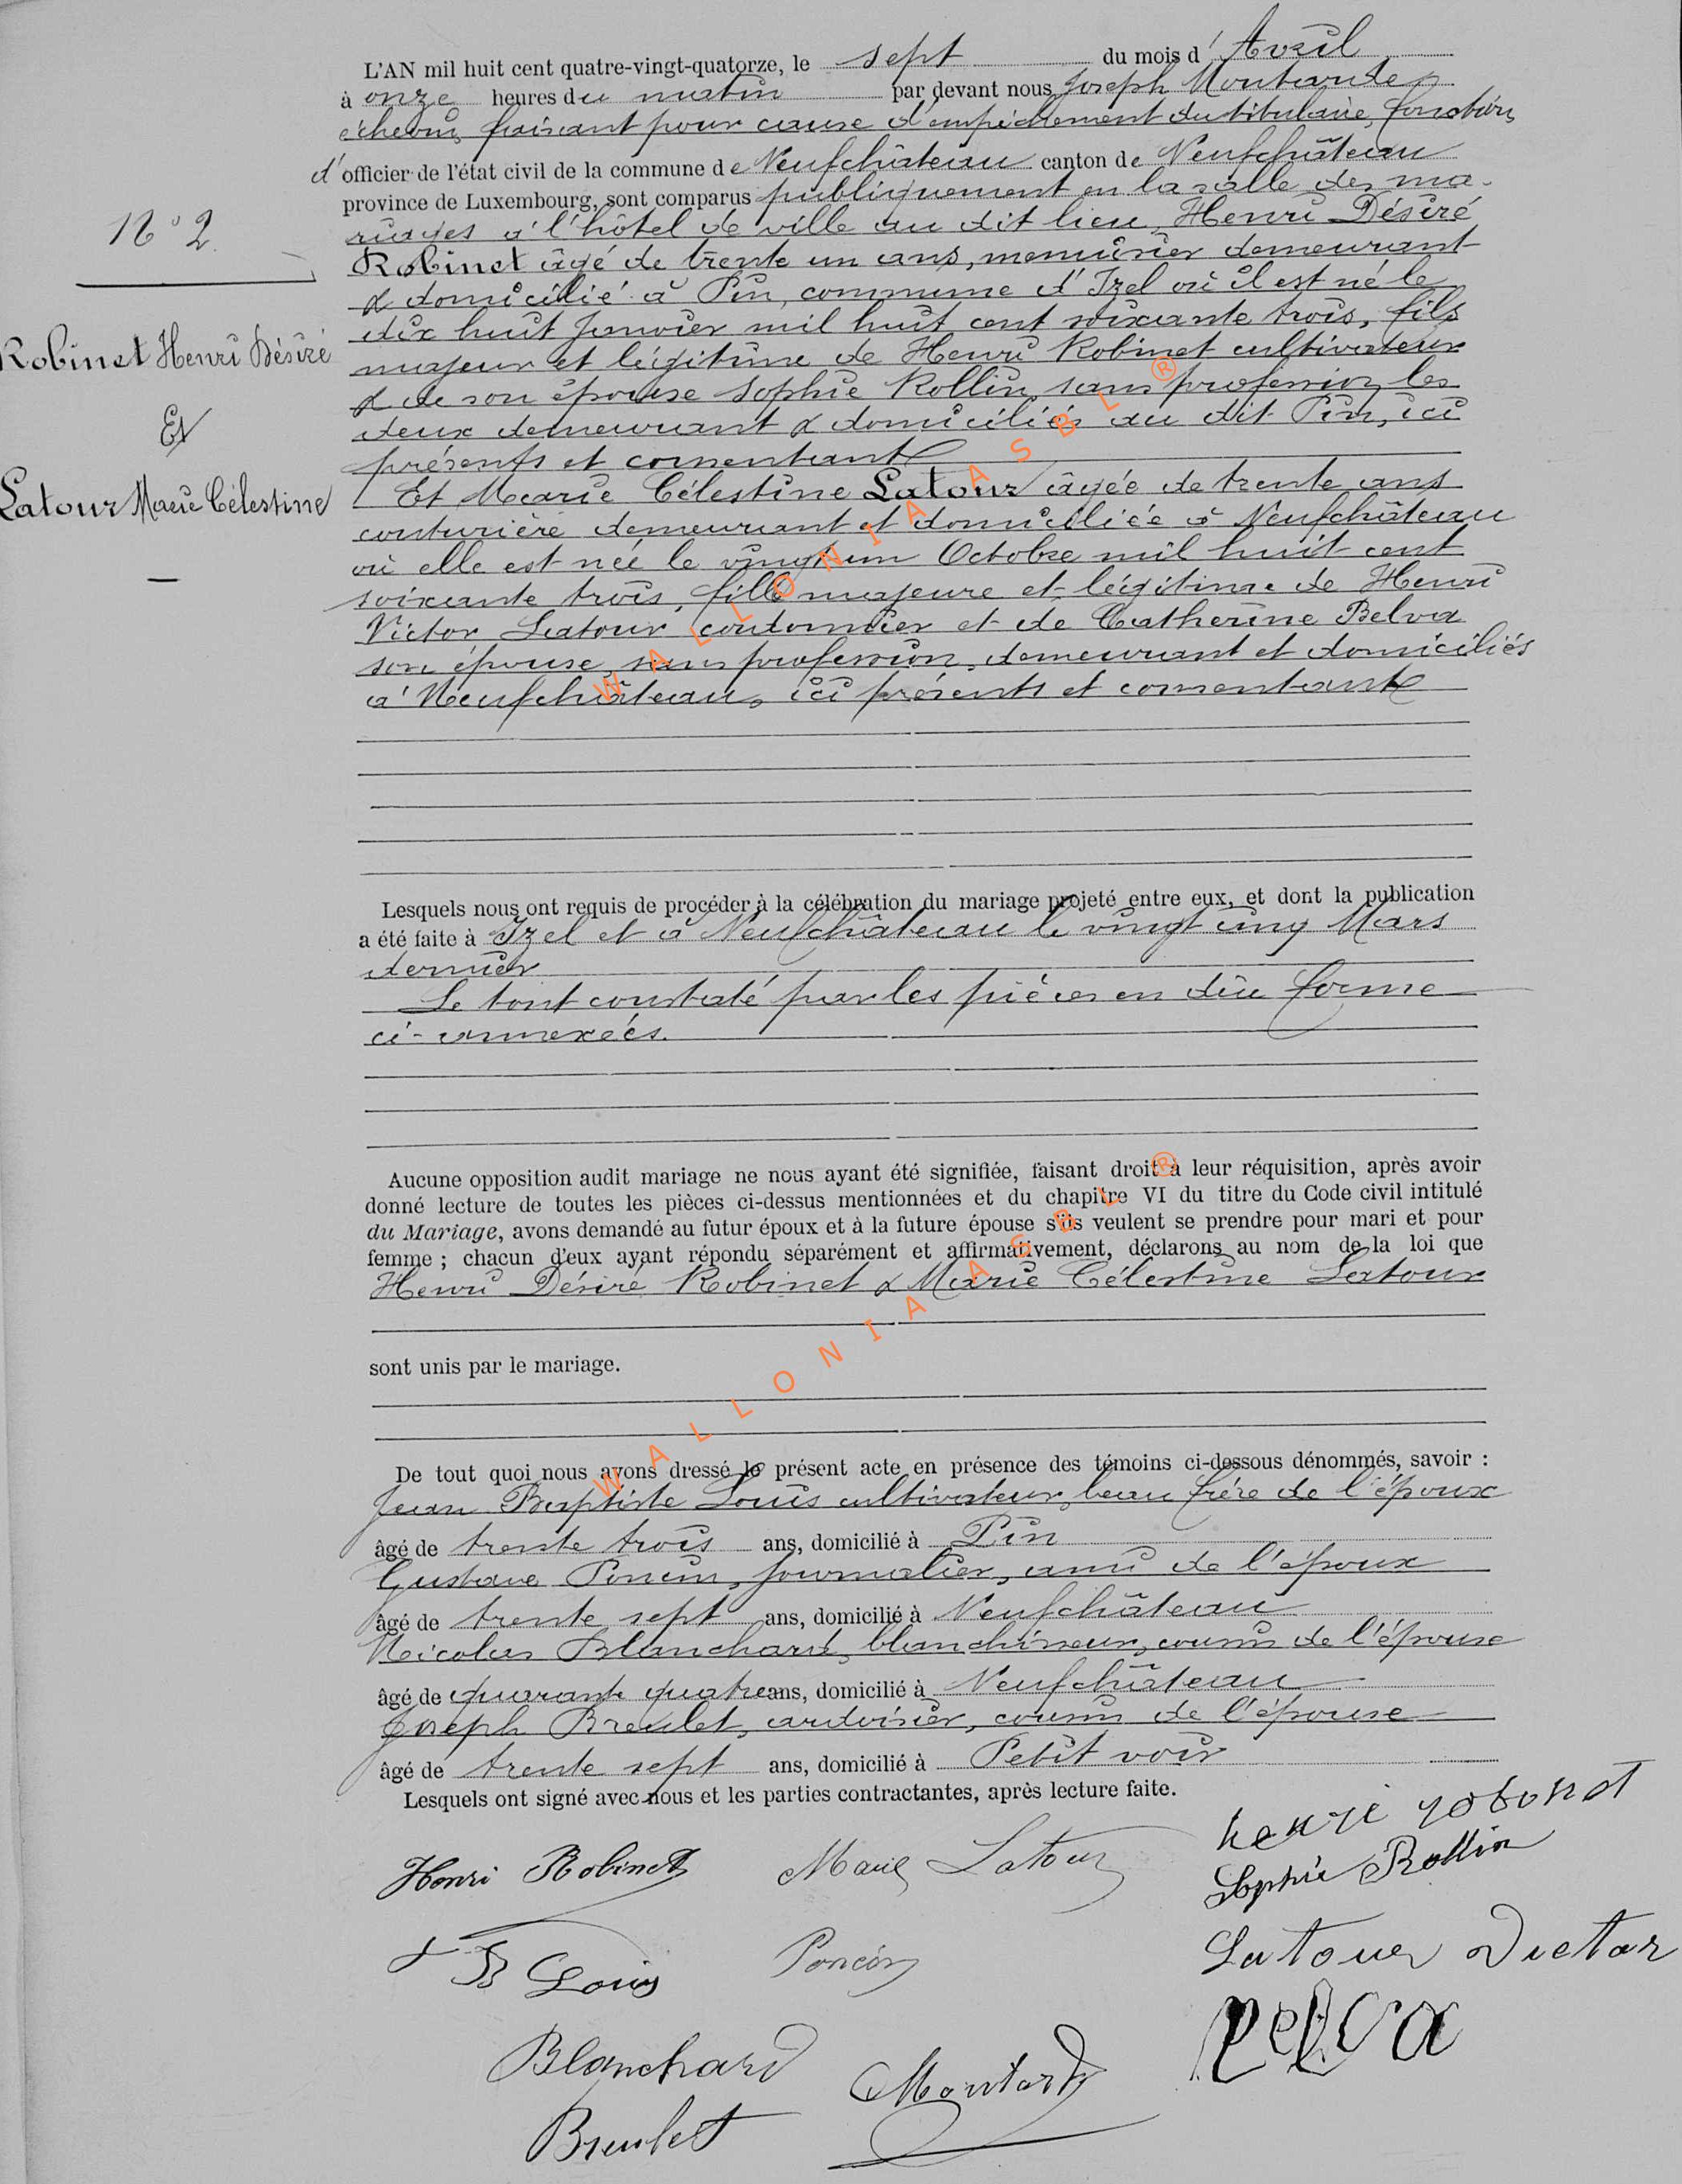 L'AN mil huit cent quatre-vingt-quatorze, le sept du mois d'Avril
à onze heures du matin par devant nous Joseph
échevin, faisant pour cause d'empêchement du titulaire, fonctions
d'officier de l'état civil de la commune de Neufchâteau canton de Neufchâteau
province de Luxembourg, sont comparus publiquement en la salle des ma-
riages à l'hôtel de ville au dit lieu, Henri Désiré
Robinet âgé de trente un ans, menuisier demeurant
& domicilié à Pin, commune d'Izel où il est né le
dix huit Janvier mil huit cent soixante trois, fils
majeur et légitime de Henri Robinet cultivateur
& de son épouse Sophie Rollin, sans profession, les
deux demeurant & domiciliés au dit Pin, ici
présents et consentants
Et Marie Célestine Latour âgée de trente ans
couturière demeurant et domiciliée à Neufchâteau
où elle est née le vingt un Octobre mil huit cent
soixante trois, fille majeure et légitime de Henri
Victor Latour cordonnier et de Catherine Belva
son épouse, sans profession, demeurant et domiciliés
à Neufchâteau, ici présents et consentants
N° 2
Robinet Henri Désiré
Et
Latour Marie Célestine
Lesquels nous ont requis de procéder à la célébration du mariage projeté entre eux, et dont la publication
a été faite à Izel et à Neufchâteau le vingt cinq Mars
dernier
Le tout constaté par les pièces en due forme
ci-annexées.
Aucune opposition audit mariage ne nous ayant été signifiée, faisant droit à leur réquisition, après avoir
donné lecture de toutes les pièces ci-dessus mentionnées et du chapitre VI du titre du Code civil intitulé
du Mariage, avons demandé au futur époux et à la future épouse s'ils veulent se prendre pour mari et pour
femme ; chacun d'eux ayant répondu séparément et affirmativement, déclarons au nom de la loi que
Henri Désiré Robinet & Marie Célestine Latour
sont unis par le mariage.
De tout quoi nous avons dressé le présent acte en présence des témoins ci-dessous dénommés, savoir :
Jean Baptiste Louis cultivateur, beau frère de l'époux
âgé de trente trois ans, domicilié à Pin
Gustave Poncin, journalier, ami de l'époux
âgé de trente sept ans, domicilié à Neufchâteau
Nicolas Blanchard, blanchisseur, cousin de l'épouse
âgé de quarante quatre ans, domicilié à Neufchâteau
Joseph Breulet, ardoisier, cousin de l'épouse
âgé de trente sept ans, domicilié à Petit voir
Lesquels ont signé avec nous et les parties contractantes, après lecture faite.
henri robinet
Henri Robinet Marie Latour Sophie Rollin
J B Louis Poncin Latour Victor
Belva
Blanchard
Breulet
WALLONIA ASBL ®
WALLONIA ASBL ®